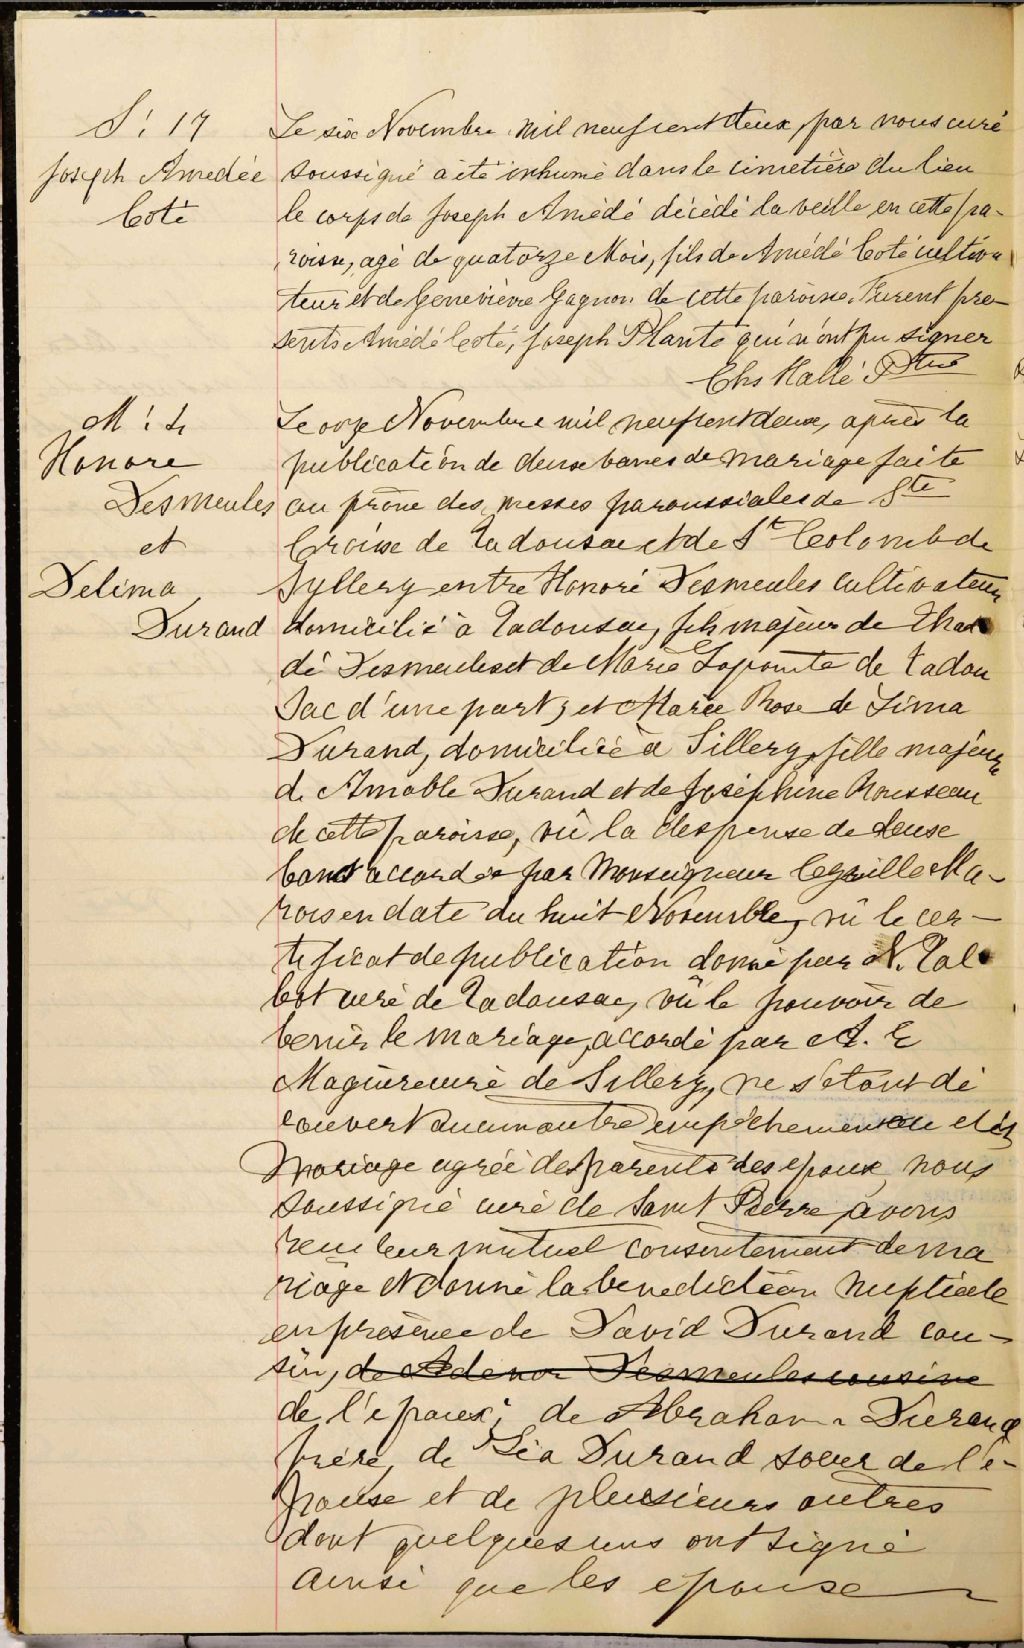 S : 17
Joseph Amedée
Coté
Le six Novembre mil neuf cent deux, par nous curé
soussigné a été inhumé dans le cimetière du lieu
le corps de Joseph Amédé décédé la veille en cette pa-
roisse, agé de quatorze Mois, fils de Amédé Coté cultiva
teur et de Geneviève Gagnon de cette paroisse. Furent pre-
sents Amédé Coté, Joseph Plante qui n'ont pu signer
Chs Hallé Ptre
M : 4
Honore
Desmeules
et
Delima
Durand
Le onze Novembre mil neuf cent deux, après la
publication de deux bancs de mariage faite
au prône des messes paroissiales de Ste
Croix de Tadousac et de St Colomb de
Syllery entre Honoré Desmeules cultivateur
domicilié à Tadousac, fils majeur de Tha
dé Desmeules et de Marie Lapointe de Tadou
sac d'une part, et Marie Rose de Lima
Durand, domiciliée à Sillery, fille majeure
de Amable Durand et de Joséphine Rousseau
de cette paroisse, vû la despense de deux
bancs accordée par Monseigneur Cyrille Ma-
rois en date du huit Novembre, vû le cer-
tificat de publication donné par N. Tal
bot curé de Tadousac, vû le pouvoir de
benir le mariage, accordé par A. E
Maguire curé de Sillery, ne s'étant dé
couvert aucun autre empêchement au dit
Mariage agréé des parents des epoux, nous
soussigné curé de Saint Pierre, avons
recu leur mutuel consentement de ma
riage et donné la benediction nuptiale
en présence de David Durand cou-
sin, de Adenor Desmeules cousine
de l'epoux; de Abraham Durand
frère, de Léa Durand soeur de l'é-
pouse et de plusieurs autres
dont quelques uns ont signé
ainsi que les epouse